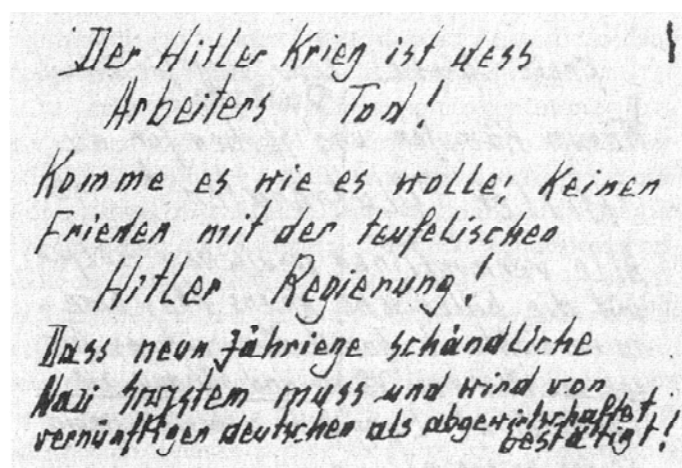 Der Hitler Krieg ist dess
Arbeiters Tod!
Komme es wie es wolle! Keinen
Frieden mit der teufelischen
Hitler Regierung!
Dass neun jähriege schändliche
Nazi Snystem muss und wird von
vernünfftigen deutschen als abgewirtschaftet
bestättigt!